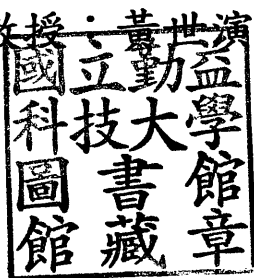 教授：黃世演
國立勤益
科技大學
圖書館
館藏章